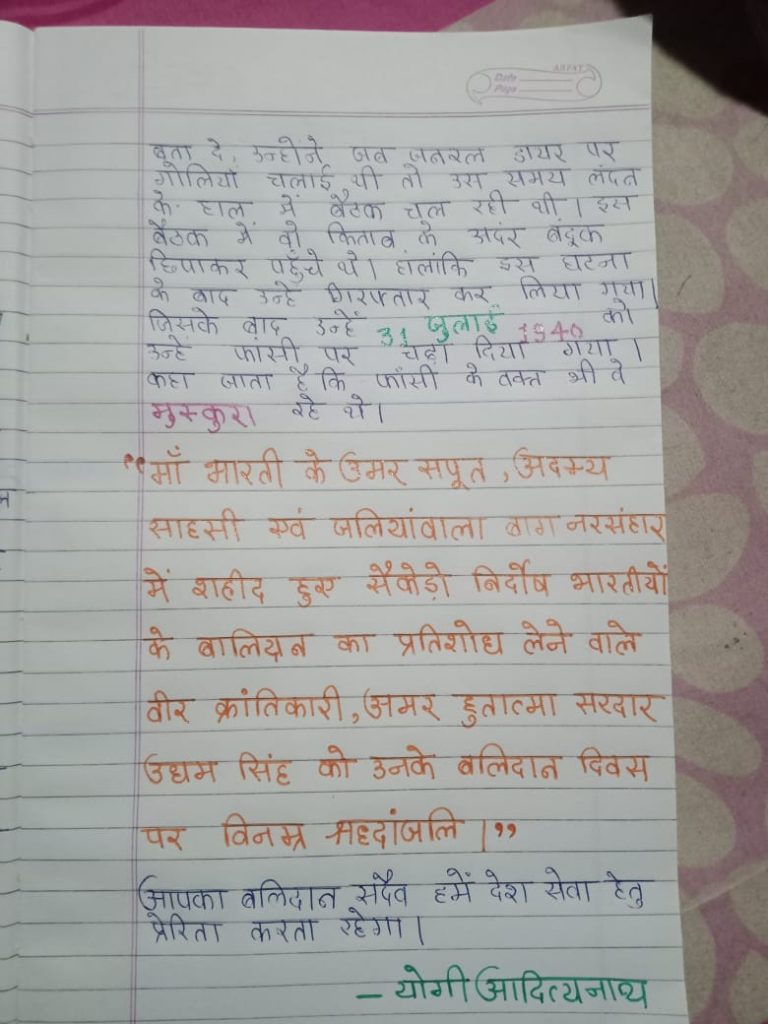 ARPAT
Date
Page
बता दे, उन्होंने जब जनरल डायर पर
गोलियाँ चलाई थी तो उस समय लंदन
के हाल में बैठक चल रही थी। इस
बैठक में वो किताब के अदंर बंदूक
छिपाकर पहुँचे थे। हालांकि इस घटना
के बाद उन्हे गिरफ्तार कर लिया गया।
जिसके बाद उन्हें 31 जुलाई 1940 को
उन्हें फांसी पर चढ़ा दिया गया।
कहा जाता है कि फाँसी के वक्त भी वे
मुस्कुरा रहे थे।
“माँ भारती के अमर सपूत, अदम्य
साहसी एवं जलियांवाला बाग नरसंहार
में शहीद हुए सैकोड़ो निर्दोष भारतीयों
के बालिदान का प्रतिशोध लेने वाले
वीर क्रांतिकारी, अमर हुतात्मा सरदार
उधम सिंह को उनके बलिदान दिवस
पर विनम्र श्रद्दांजलि।”
आपका बलिदान सदैव हमें देश सेवा हेतु
प्रेरिता करता रहेगा।
– योगी आदित्यनाथ